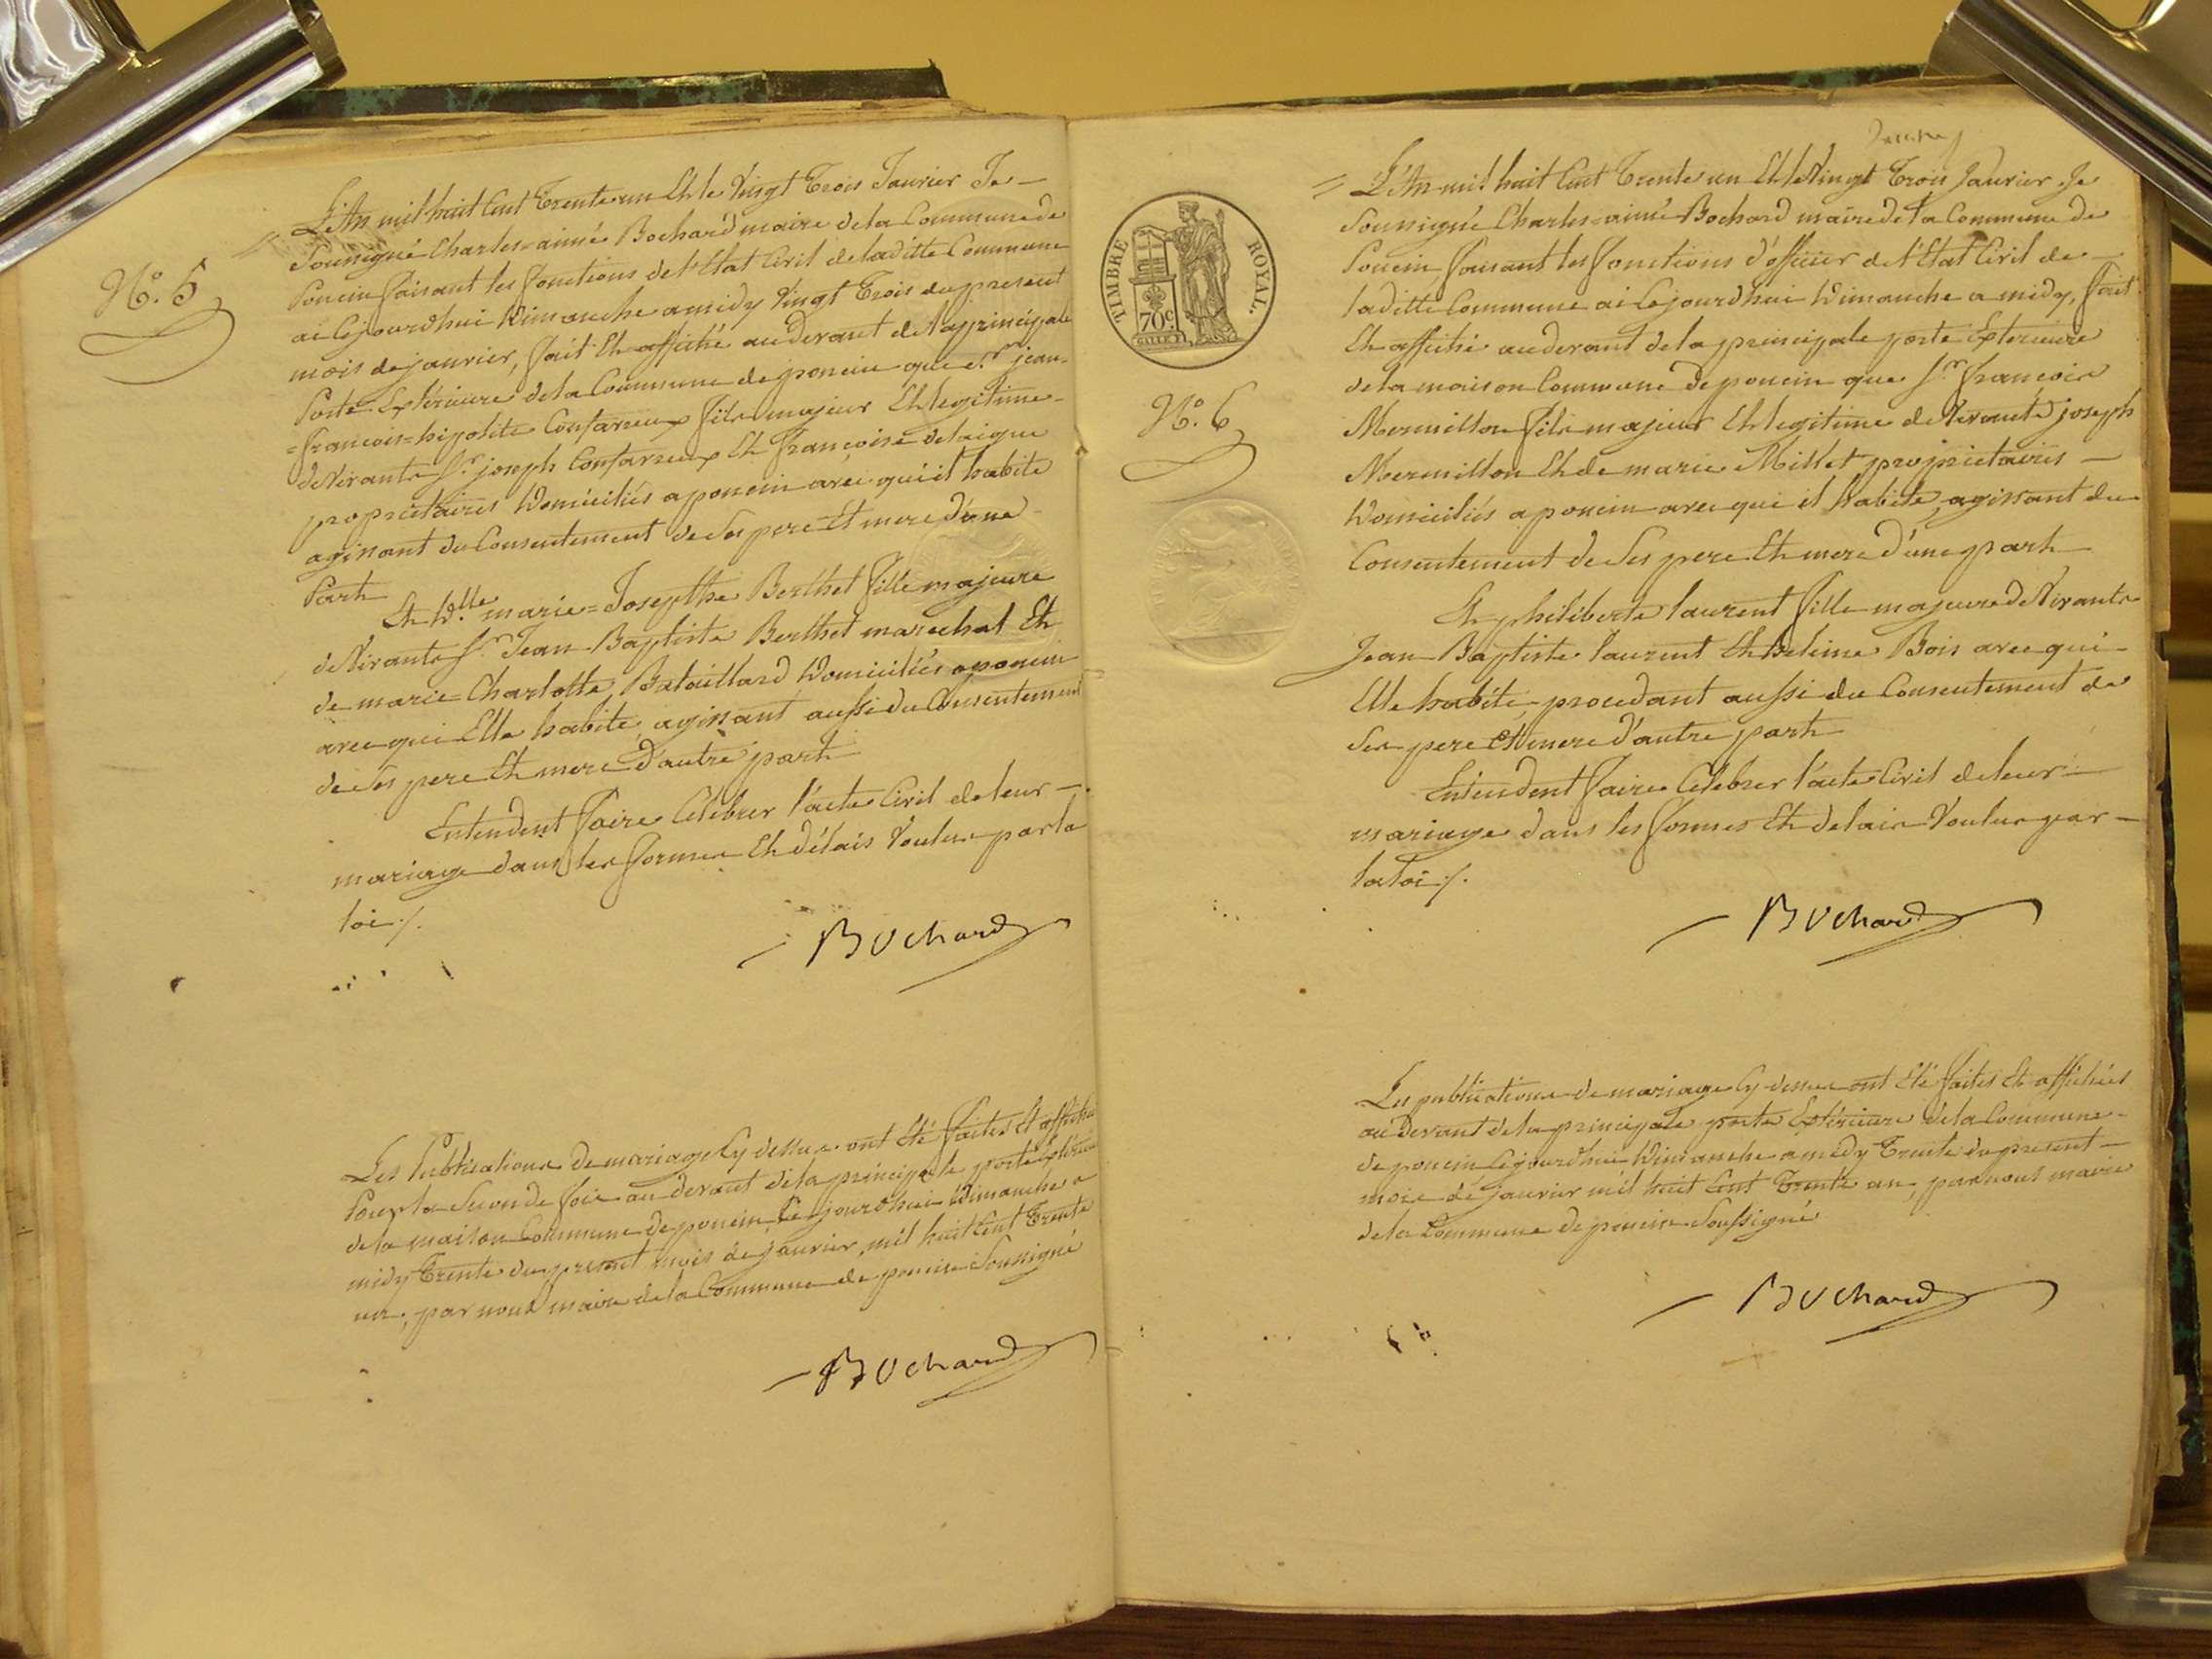 N.° 5
L'An mil huit Cent Trente un Et le Vingt Trois Janvier Je
Soussigné Charles=aimé Bochard maire de la Commune de
Poncin faisant les fonctions de l'Etat Civil de laditte Commune
ai Cejourdhui Dimanche a midy Vingt Trois du present
mois de janvier, fait Et affiché au devant de la principale
Porte Extérieure de la Commune de poncin que S.r jean=
=francois=hipolite Confavreux fils majeur Et legitime
de Vivants S.r joseph Confavreux Et françoise delaigue
propriétaires Domiciliés a poncin avec qui il habite
agissant du Consentement de Ses pere Et mere D'une
Part
Et D.lle marie=Josepthe Berthet fille majeure
de Vivants S.r Jean Baptiste Berthet marechal Et
de marie=Charlotte Bataillard Domiciliés a poncin
avec qui Elle habite, agissant aussi du Consentement
de Ses pere Et mere D'autre part
Entendent faire Célébrer l'acte Civil de leur
mariage dans les formes Et délais Voulus par la
loi ./.
Bochard
Les Publications de mariage Cy dessus ont été faites Et affichées
Pour la Seconde fois au devant de la principale porte Extérieure
de la maison Commune de poncin, Ce jourdhui Dimanche a
midy Trente du present mois de janvier, mil huit Cent Trente
un, par nous maire de la Commune de poncin Soussigné
Bochard
TIMBRE ROYAL.
70 c.
N.° 6
L'An mil huit Cent Trente un Et le Vingt Trois Janvier Je
Soussigné Charles=aimé Bochard maire de la Commune de
Poncin faisant les fonctions d'officier de l'Etat Civil de
laditte Commune ai Cejourdhui Dimanche a midy, fait
Et affiché au devant de la principale porte Exterieure
de la maison Commune de poncin que S.r francois
Mermillon fils majeur Et legitime de Vivants joseph
Mermillon Et de marie Millet propriétaires
Domiciliés a poncin avec qui il habite, agissant du
Consentement de Ses pere Et mere d'une part
Et philiberte laurent fille majeure de Vivants
Jean Baptiste laurent Et Bois avec qui
Elle habite, procedant aussi du Consentement de
Ses pere Et mere d'autre part
Entendent faire Célébrer l'acte Civil de leur
mariage dans les formes Et delais Voulus par
la loi ./.
Bochard
Les publications de mariage Cy dessus ont Eté faites Et affichées
au devant de la principale porte Extérieure de la Commune
de poncin Cejourdhui Dimanche a midy Trente du present
mois de janvier mil huit Cent Trente un, par nous maire
de la Commune de poncin Soussigné
Bochard